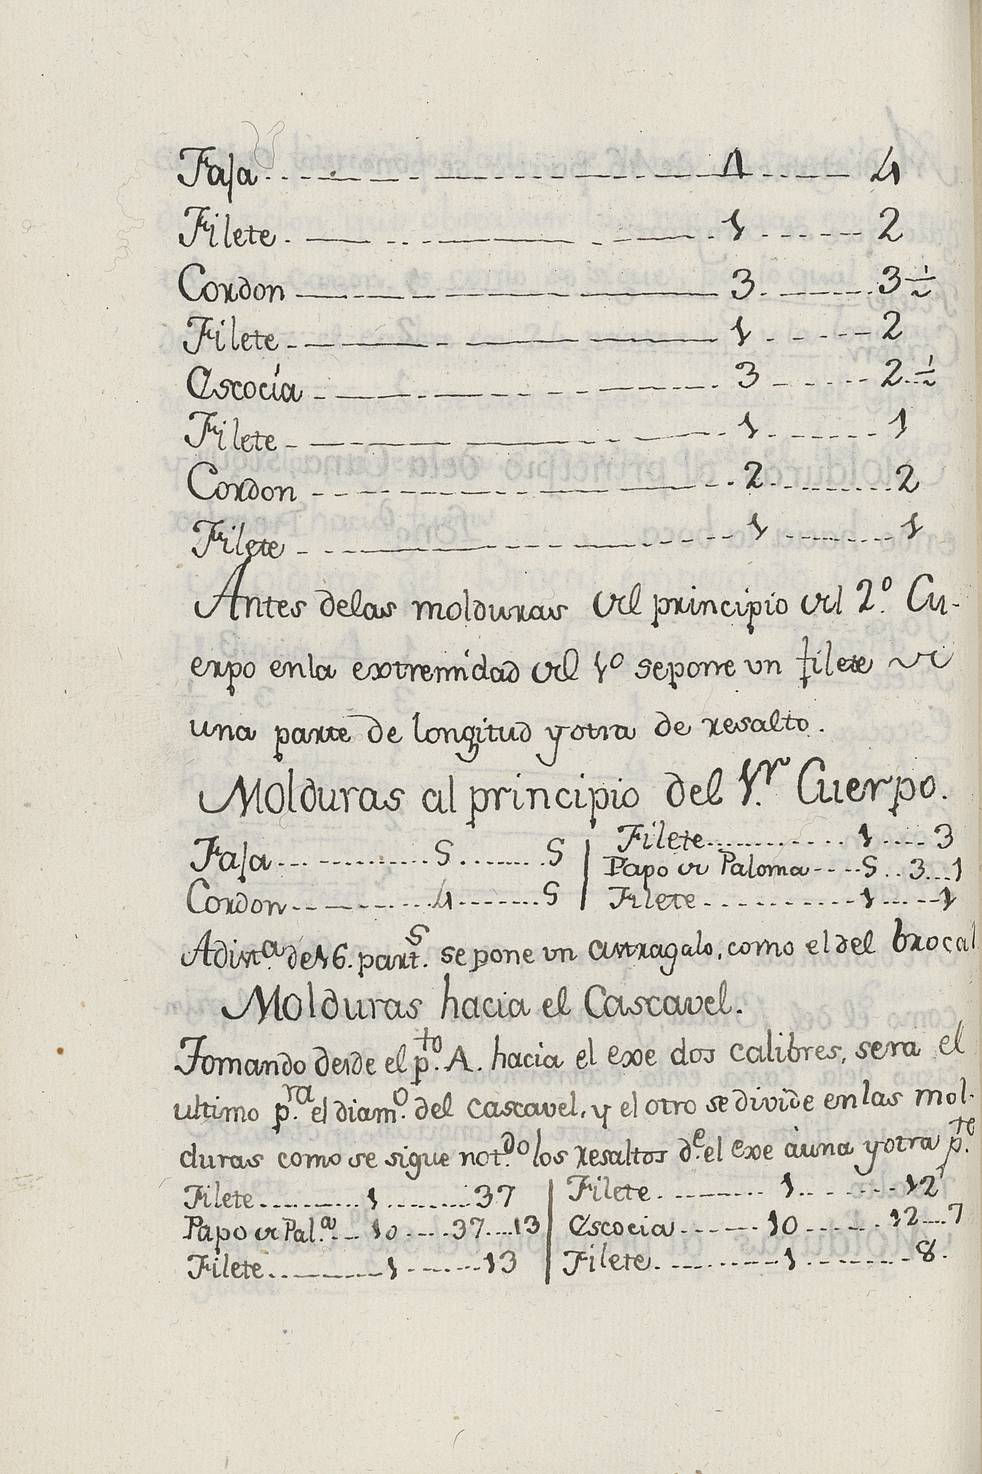 Faja 4 4
Filete 1 2
Cordon 3 3 1/2
Filete 1 2
Escocía 3 2 1/2
Filete 1 1
Cordon 2 2
Filete 1 1
Antes delas molduras del principio del 2.º Cu-
erpo enla extremidad del 1º sepone un filete de
una parte de longitud y otra de resalto.
Molduras al principio del 1.er Cuerpo.
Faja 5 5
Cordon 4 5
Filete 1 3
Papo de Paloma 5 3 1
Filete 1 1
A dist.a de 16. part.s se pone un astragalo, como el del brocal
Molduras hacia el Cascavel.
Tomando desde el p.to A. hacia el exe dos calibres, sera el
ultimo p.ra el diam.o del cascavel, y el otro se divide en las mol-
duras como se sigue not.do los resaltos d.e el exe à una y otra p.te
Filete 1 37
Papo de Pal.a 10 37 13
Filete 1 13
Filete 1 12
Escocia 10 12 7
Filete 1 8.